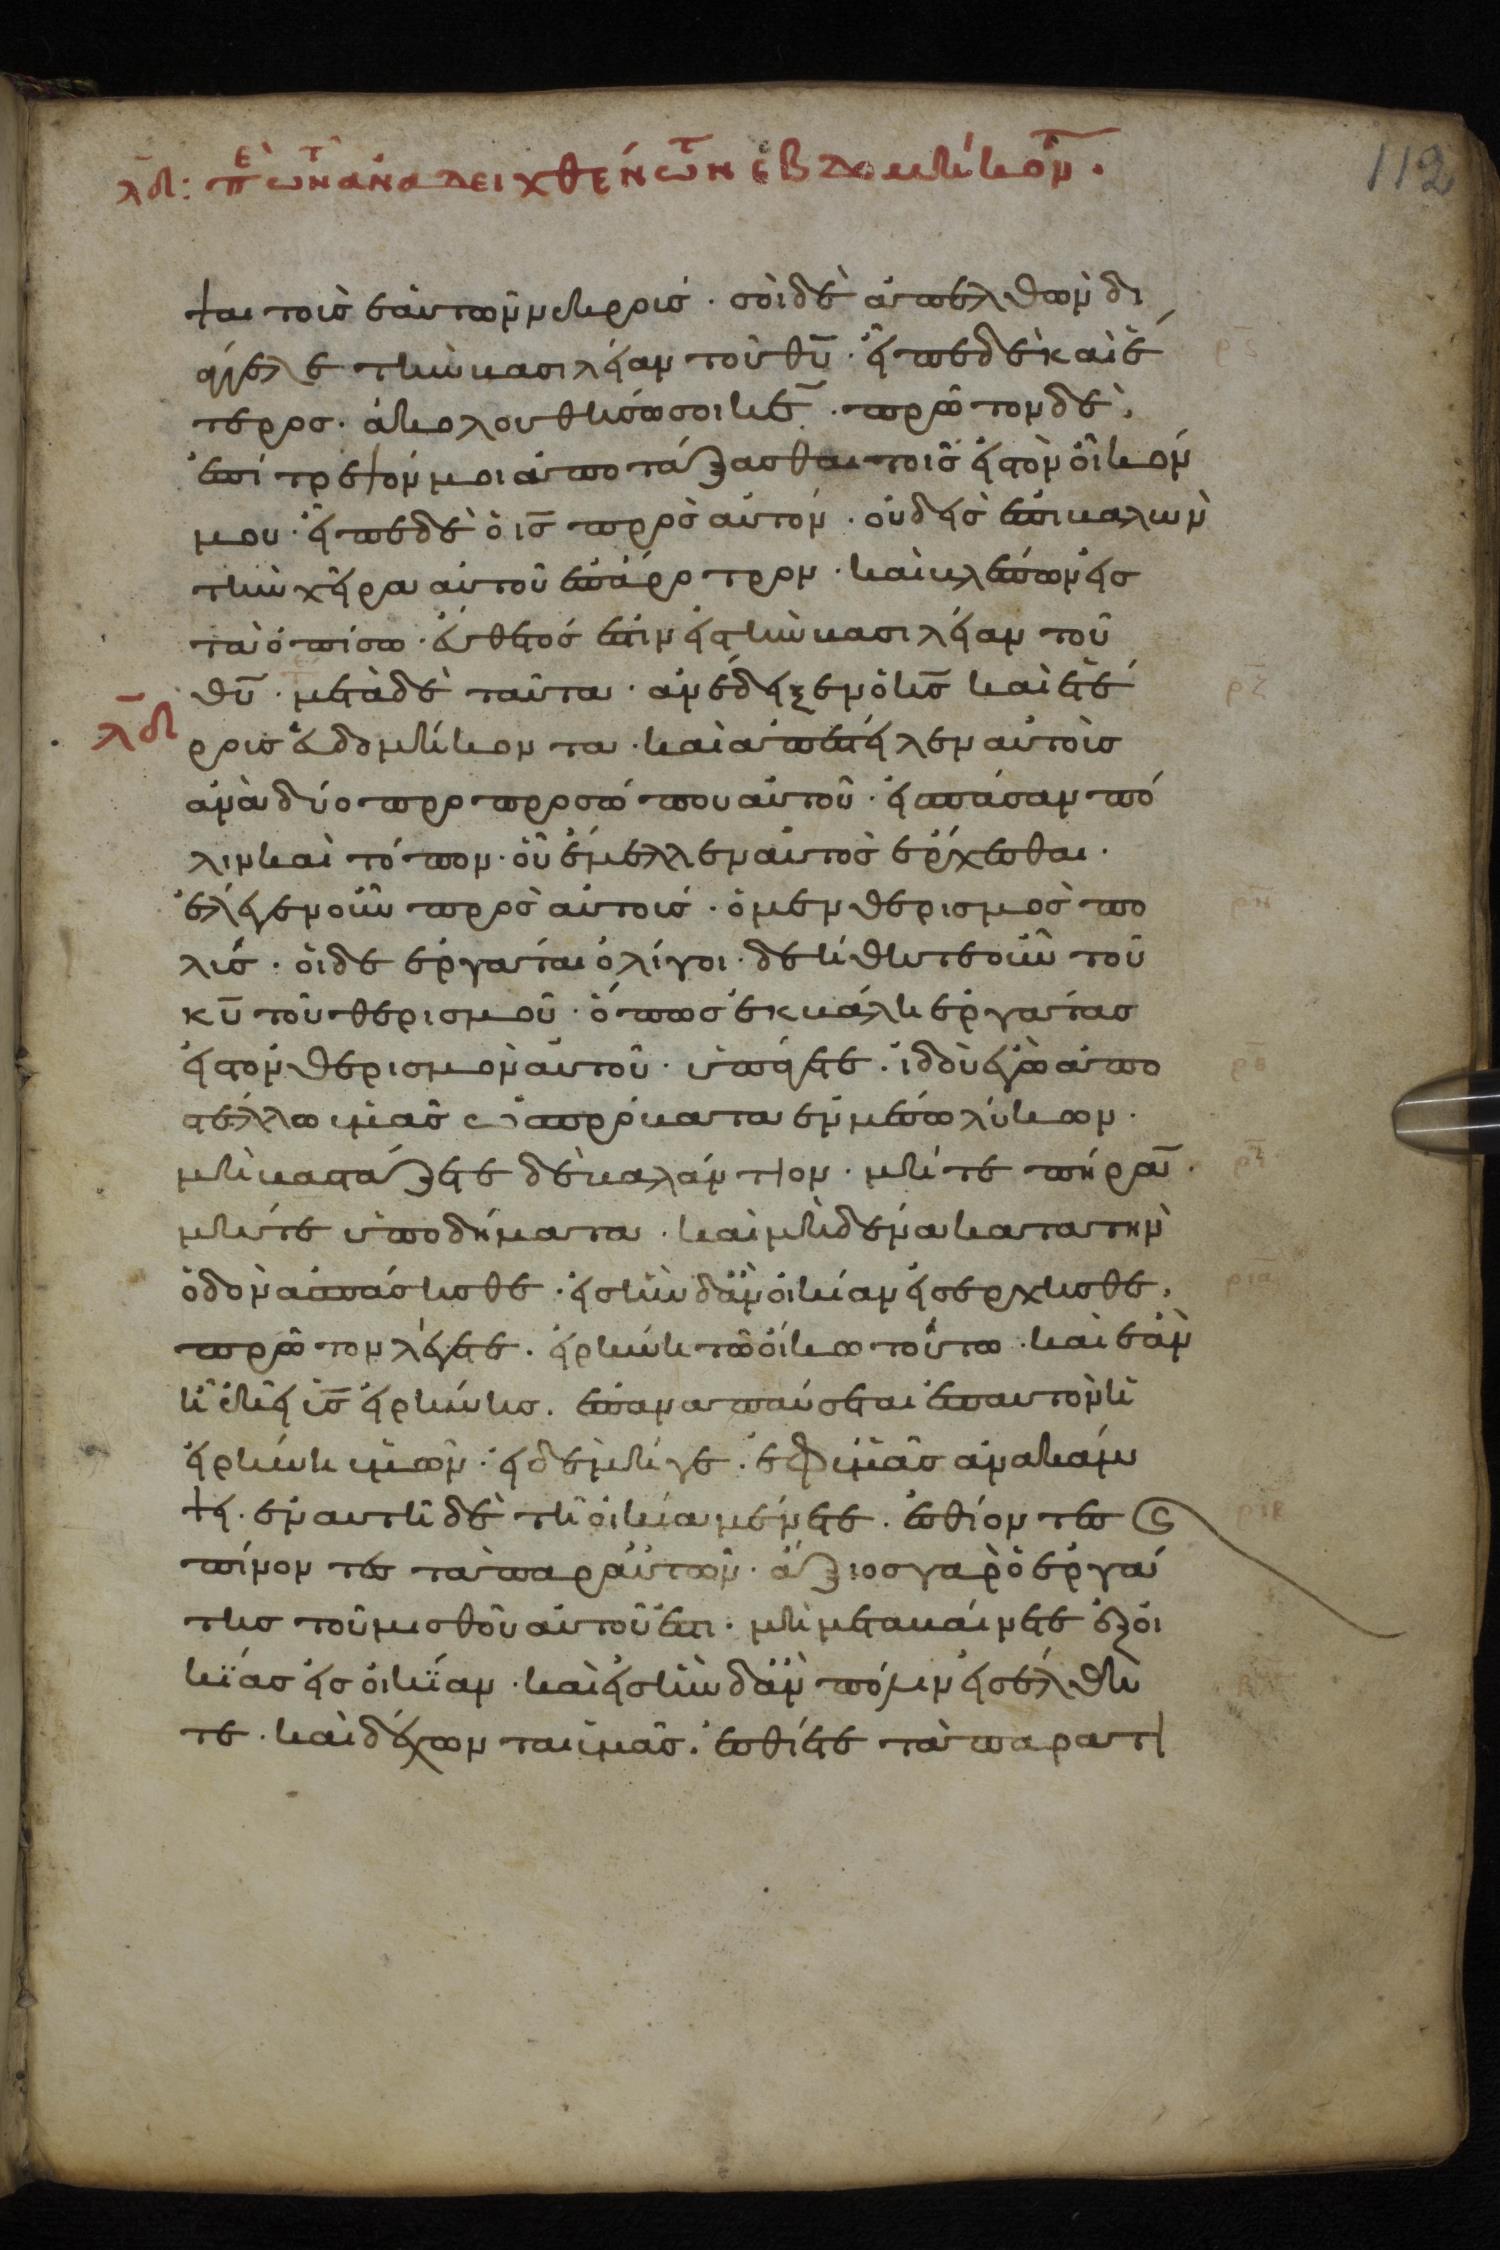 λδ: πε τῶν ἀναδειχθέντων ἑβδομήκοντ.
112
ψαι τοὺς ἑαυτῶν νεκρούς · σὺ δὲ ἀπελθὼν δι
άγγελε τὴν βασιλείαν τοῦ θυ · εἶπε δὲ καὶ ἕ
τερος · ἀκολουθήσω σοι κε · πρῶτον δὲ,
ἐπίτρεψόν μοι ἀποτάξασθαι τοῖς εἰς τὸν οἶκόν
μου · εἶπε δὲ ὁ ις πρὸς αὐτόν · οὐδεὶς ἐπιβαλὼν
τὴν χεῖρα αὐτοῦ ἐπ' ἄροτρον · καὶ βλέπων εἰς
τὰ ὀπίσω · εὔθετός ἐστιν εἰς τὴν βασιλείαν τοῦ
θυ · μετὰ δὲ ταῦτα · ἀνέδειξεν ὁ κς καὶ ἑτέ
λδ
ρους ἑβδομήκοντα · καὶ ἀπέστειλεν αὐτοὺς
ἀνὰ δύο πρὸ προσώπου αὐτοῦ · εἰς πᾶσαν πό
λιν καὶ τόπον · οὗ ἔμελλεν αὐτὸς ἔρχεσθαι ·
ἔλεγεν οὖν πρὸς αὐτούς · ὁ μὲν θερισμὸς πο
λύς · οἱ δὲ ἐργάται ὀλίγοι · δεήθητε οὖν τοῦ
κυ τοῦ θερισμοῦ · ὅπως ἐκβάλη ἐργάτας
εἰς τὸν θερισμὸν αὐτοῦ · ὑπάγετε · ἰδοὺ ἐγὼ ἀπο
στέλλω ὑμᾶς ὡς πρόβατα ἐν μέσω λύκων ·
μὴ βαστάζετε δὲ βαλάντιον · μήτε πήραν ·
μήτε ὑποδήματα · καὶ μηδένα κατὰ τὴν
ὁδὸν ἀσπάσησθε · εἰς ἣν δ' ἂν οἰκίαν εἰσέρχησθε,
πρῶτον λέγετε · εἰρήνη τῶ οἴκω τούτω · καὶ ἐὰν
ἦ ἐκεῖ υς εἰρήνης · ἐπαναπαύσεται ἐπ' αὐτὸν ἡ
εἰρήνη ὑμῶν · εἰ δὲ μήγε · ἐφ' ὑμᾶς ἀνακάμ
ψει · ἐν αὐτῆ δὲ τῆ οἰκία μένετε · ἐσθίοντες
πίνοντες τὰ παρ' αὐτῶν · ἄξιος γὰρ ὁ ἐργά
της τοῦ μισθοῦ αὐτοῦ ἐστι · μὴ μεταβαίνετε ἐξ οἰ
κίας εἰς οἰκίαν · καὶ εἰς ἣν δ' ἂν πόλιν εἰσέλθη
τε · καὶ δέχωνται ὑμᾶς · ἐσθίετε τὰ παρατι